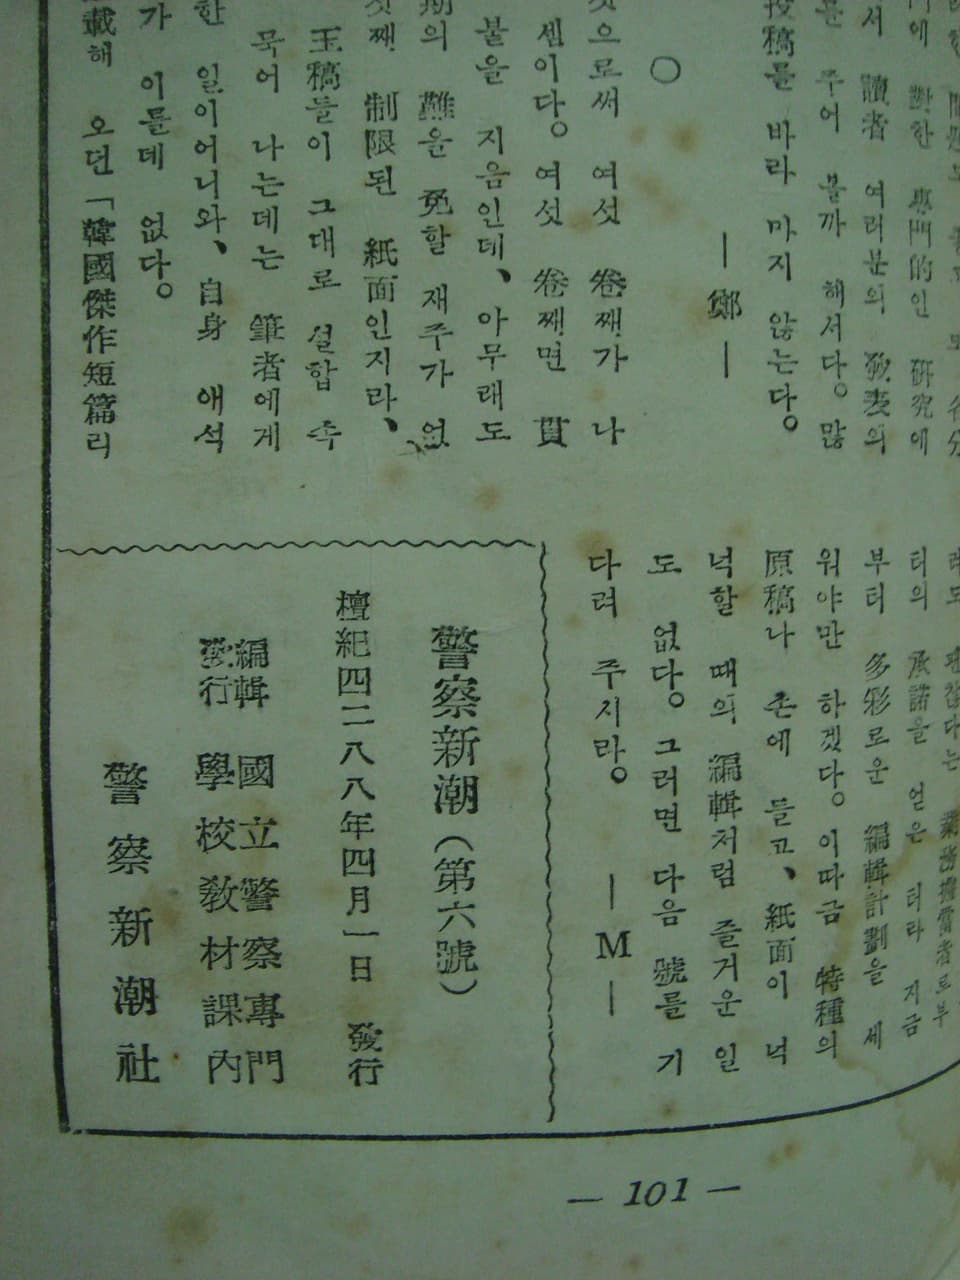 에 對한 專門的인 硏究에
서 讀者 여러분의 發表의
를 주어 볼까 해서다。많
投稿를 바라 마지 않는다。
―鄭―
○
으로써 여섯 卷째가 나
셈이다。여섯 卷째면 貫
붙을 지음인데、아무래도
期의 難을 免할 재주가 없
째 制限된 紙面인지라、
玉稿들이 그대로 설합 속
묵어 나는데는 筆者에게
한 일이어니와、自身 애석
가 이를데 없다。
載해 오던「韓國傑作短篇리
業務擔當者로부
터의 承諾을 얻은 터라 지금
부터 多彩로운 編輯計劃을 세
워야만 하겠다。이따금 特種의
原稿나 손에 들고、紙面이 넉
넉할 때의 編輯처럼 즐거운 일
도 없다。그러면 다음 號를 기
다려 주시라。 ―M―
警察新潮(第六號)
檀紀四二八八年四月一日 發行
編輯 國立警察專門
發行 學校敎材課內
警察新潮社
— 101 —